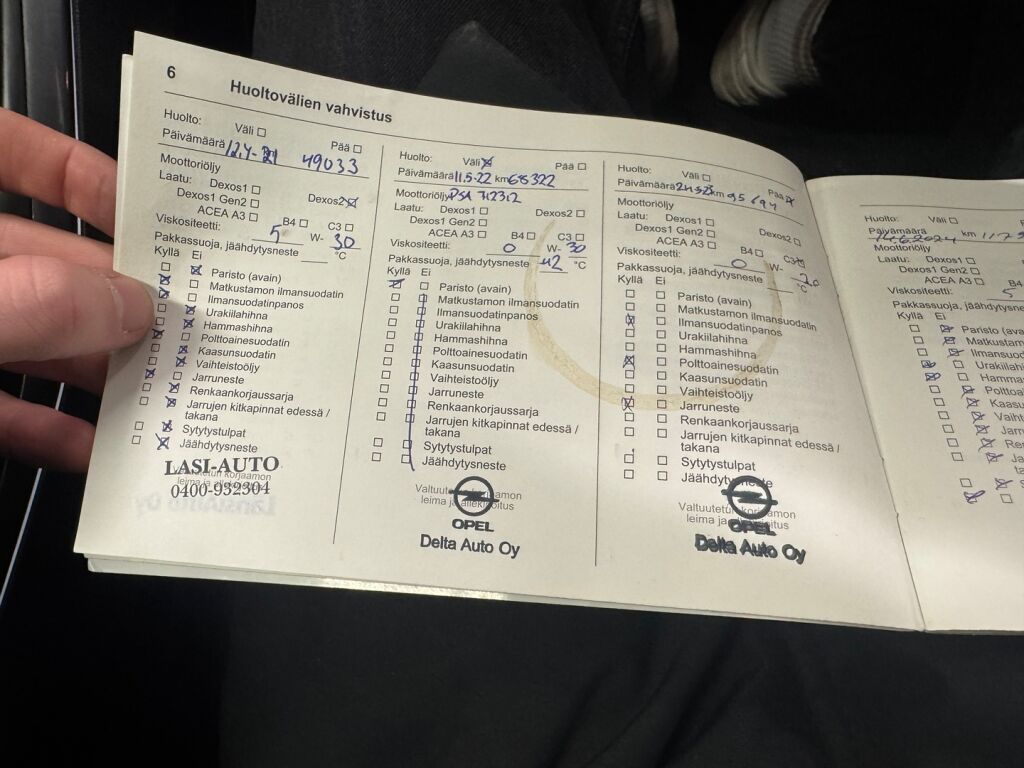 6
Huoltovälien vahvistus
Huolto: Väli Pää
Päivämäärä 12.4-21 49033
Moottoriöljy
Laatu: Dexos1 Dexos2
Dexos1 Gen2
ACEA A3 B4 C3
Viskositeetti: 5 W- 30
Pakkassuoja, jäähdytysneste °C
Kyllä Ei
Paristo (avain)
Matkustamon ilmansuodatin
Ilmansuodatinpanos
Urakiilahihna
Hammashihna
Polttoainesuodatin
Kaasunsuodatin
Vaihteistoöljy
Jarruneste
Renkaankorjaussarja
Jarrujen kitkapinnat edessä /
takana
Sytytystulpat
Jäähdytysneste
Valtuutetun korjaamon
LASI-AUTO
0400-932304
Huolto: Väli Pää
Päivämäärä 11.5-22 km 68322
Moottoriöljy PSA 712312
Laatu: Dexos1 Dexos2
Dexos1 Gen2
ACEA A3 B4 C3
Viskositeetti: 0 W- 30
Pakkassuoja, jäähdytysneste -42 °C
Kyllä Ei
Paristo (avain)
Matkustamon ilmansuodatin
Ilmansuodatinpanos
Urakiilahihna
Hammashihna
Polttoainesuodatin
Kaasunsuodatin
Vaihteistoöljy
Jarruneste
Renkaankorjaussarja
Jarrujen kitkapinnat edessä /
takana
Sytytystulpat
Jäähdytysneste
Valtuutetun korjaamon
leima ja allekirjoitus
OPEL
Delta Auto Oy
Huolto: Väli Pää
Päivämäärä km
Moottoriöljy
Laatu: Dexos1 Dexos2
Dexos1 Gen2
ACEA A3 B4 C3
Viskositeetti: 0 W- 20
Pakkassuoja, jäähdytysneste °C
Kyllä Ei
Paristo (avain)
Matkustamon ilmansuodatin
Ilmansuodatinpanos
Urakiilahihna
Hammashihna
Polttoainesuodatin
Kaasunsuodatin
Vaihteistoöljy
Jarruneste
Renkaankorjaussarja
Jarrujen kitkapinnat edessä /
takana
Sytytystulpat
Jäähdytysneste
Valtuutetun korjaamon
leima ja allekirjoitus
OPEL
Delta Auto Oy
Huolto: Väli
Päivämäärä 14.6.2024 km
Moottoriöljy
Laatu: Dexos1
Dexos1 Gen2
ACEA A3 B4
Viskositeetti: 5
Pakkassuoja, jäähdytysneste
Kyllä Ei
Paristo (ava
Matkustam
Ilmansuod
Urakiilah
Hamma
Polttoa
Kaasu
Vaiht
Jarr
Re
Ja